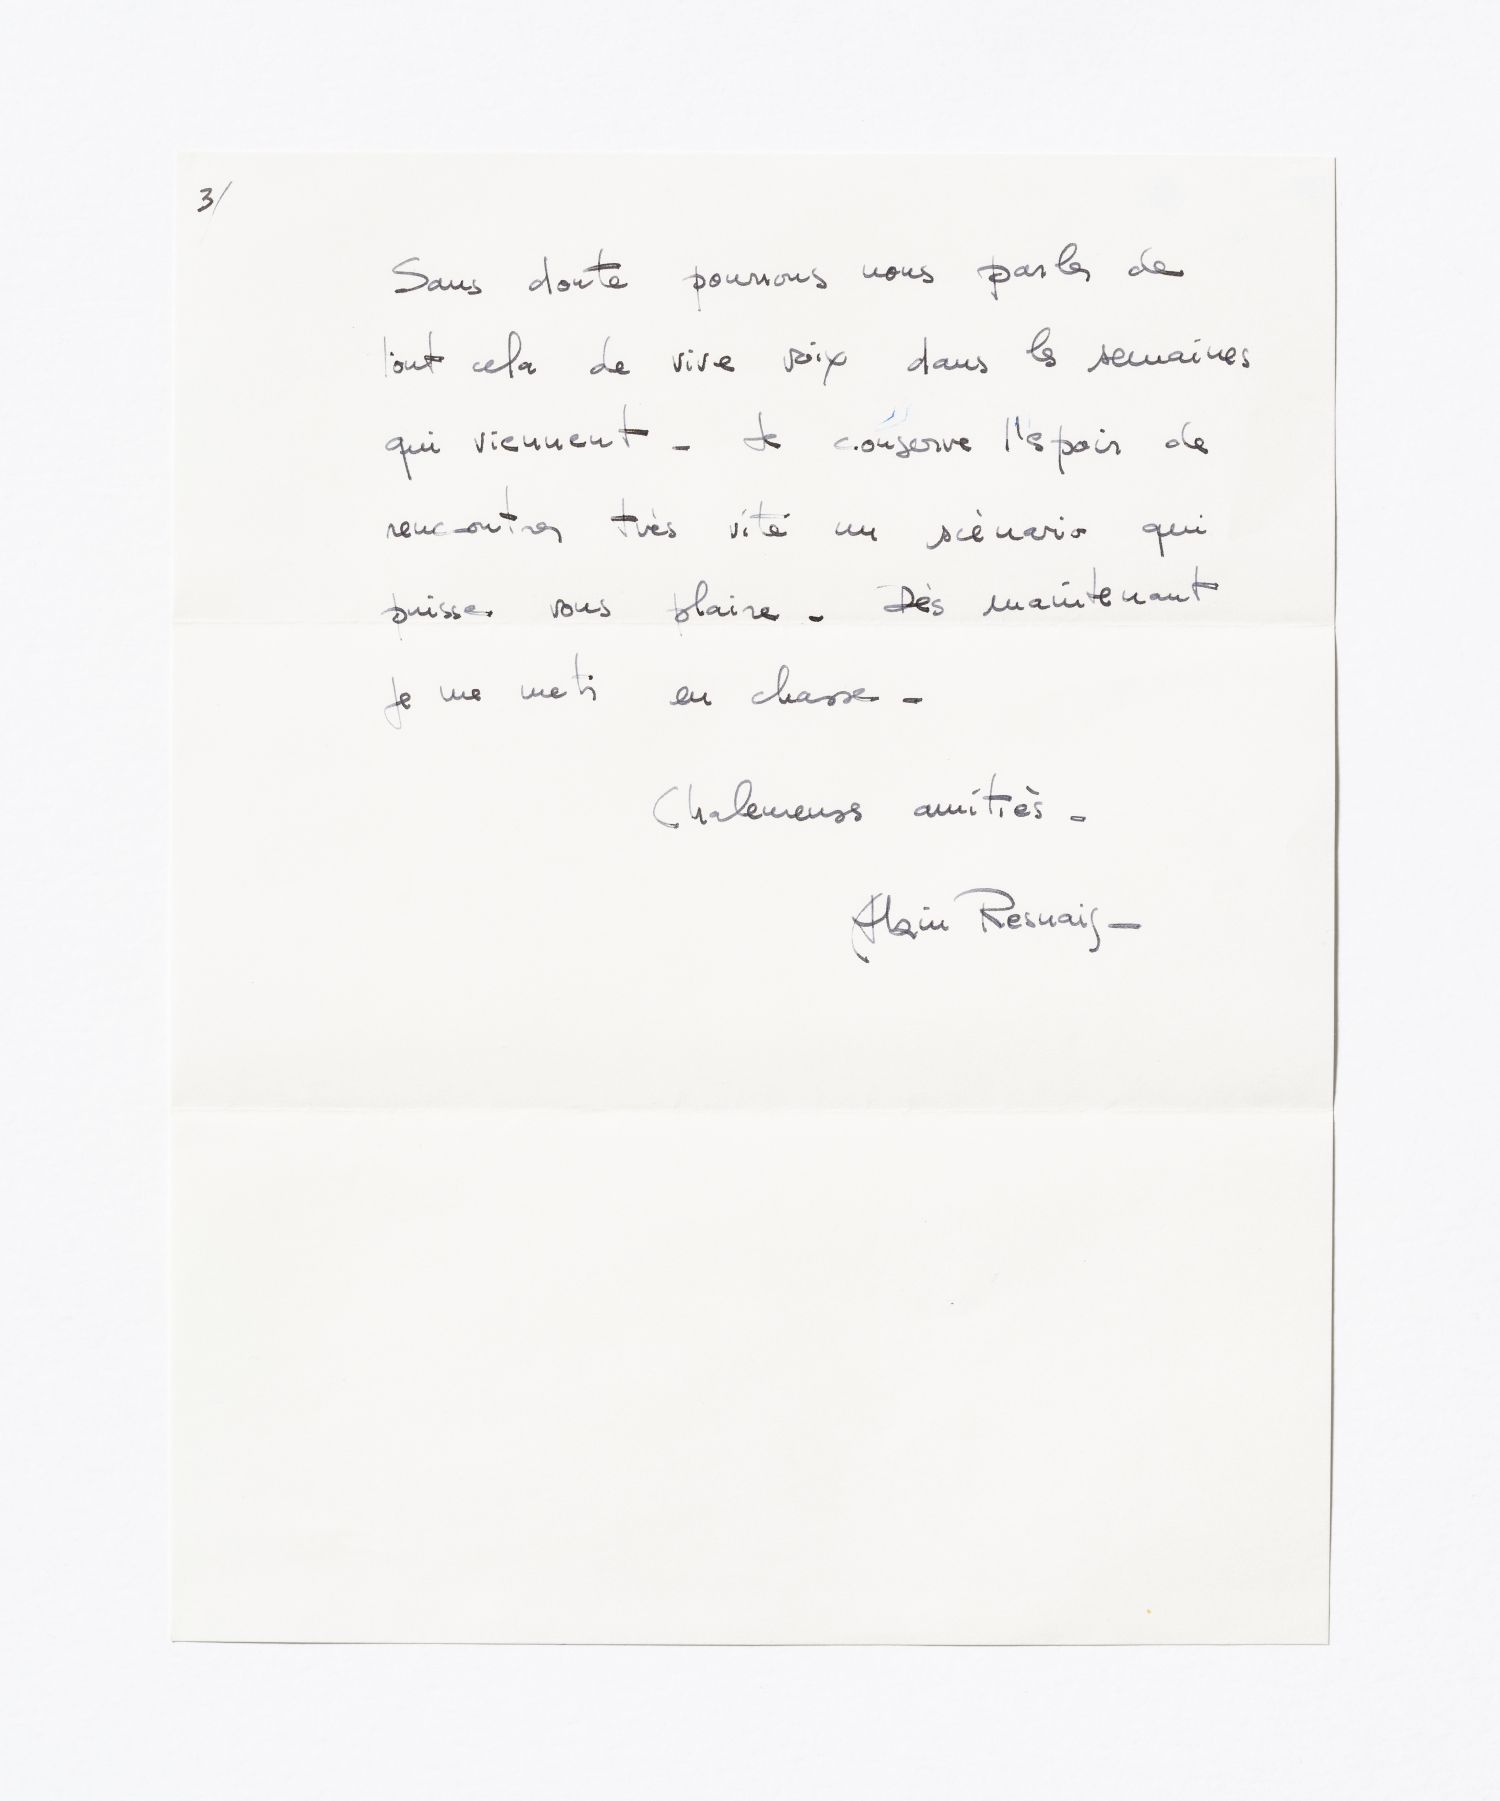 3/
Sans doute pourrons nous parler de
tout cela de vive voix dans les semaines
qui viennent - Je conserve l'espoir de
rencontrer très vite un scénario qui
puisse vous plaire - Dès maintenant
je me mets en chasse -
Chaleureuses amitiés -
Alain Resnais -